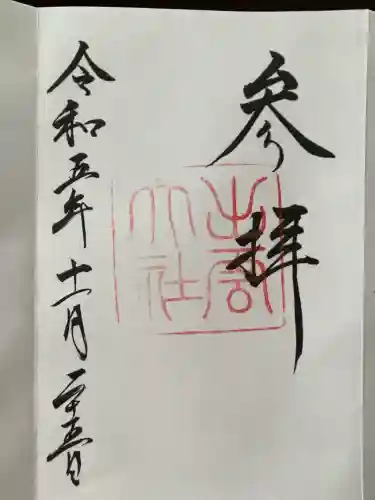 参拝
出雲大社
令和五年十一月二十五日